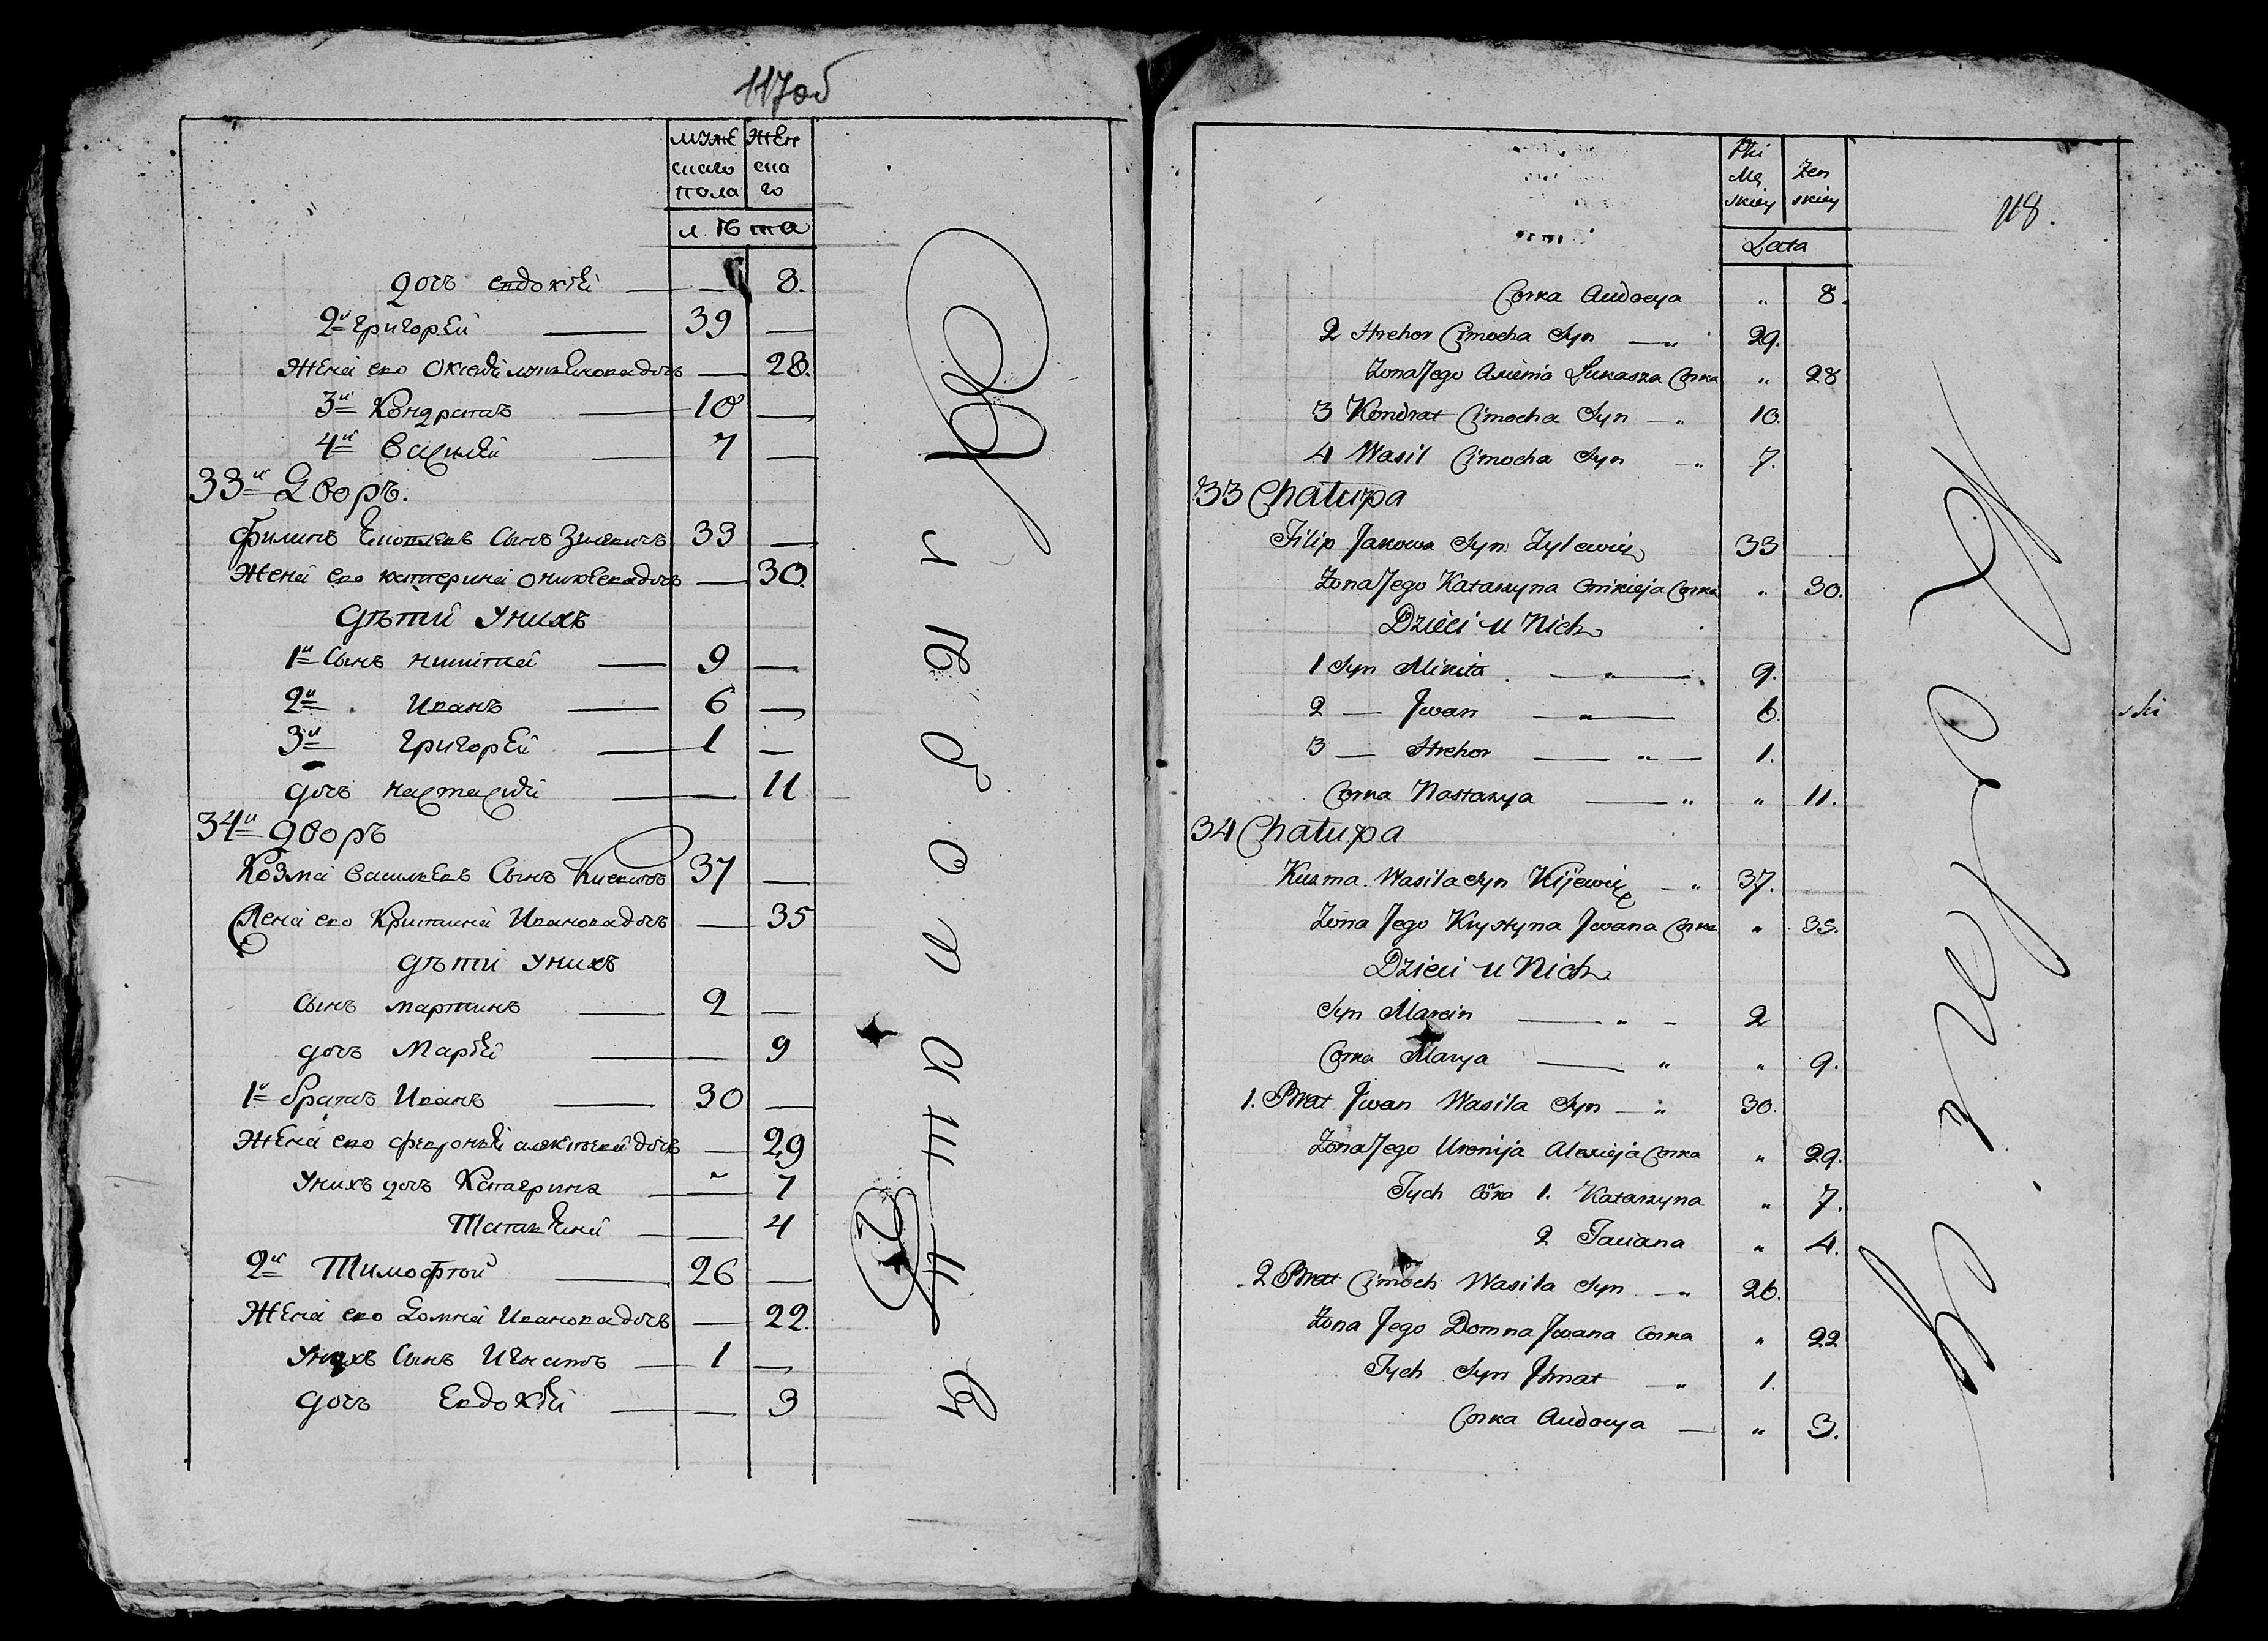 117об
муже скаго пола
жен ска го
лѣта
дочь евдокѣй 8.
2й григорей 39
жена его Оксенѣ лукянова дочь 28.
3й Кондратъ 10
4й василѣй 7
33й Дворъ.
филипъ сынъ 33
жена его катерина дочь 30.
дѣти у нихъ
1й сынъ никита 9
2й Иванъ 6
3й григорей 1
дочь настасиѣй 11
34й дворъ
Козма василевъ сынъ 37
жена его Кристина Иванова дочь 35
дѣти у нихъ
сынъ мартинъ 2
дочь Марѣй 9
1й братъ Иванъ 30
Жена его дочь 29
у нихъ дочь Катерина 7
4
2й Тимофтой 26
Жена его Домна Иванова дочь 22.
у нихъ сынъ Игнатъ 1
дочь Евдокѣй 3
118.
Płci Mę skiey
Żen skiey
Lata
Corka Audocya " 8.
2 Hrehor Cimocha Syn 29.
Zona Jego Axienia Łukasza Corka " 28
3 Kondrat Cimocha Syn 10.
4 Wasil Cimocha Syn 7.
33 Chałupa
Filip Jakowa Syn Zylewicz 33
Zona Jego Katarzyna Onikieja Corka " 30.
Dzieci u Nich
1 Syn Mikita 9.
2 — Jwan 6.
3 — Hrehor 1.
Corka Nastazya " 11.
34 Chałupa
Kuzma Wasila Syn Kijewicz 37.
Zona Jego Krystyna Jwana Corka " 35.
Dzieci u Nich
Syn Marcin 2
Corka Marya " 9.
1. Brat Jwan Wasila Syn 30.
Zona Jego Uronija Alexieja Corka " 29.
Tych Córa 1. Katarzyna " 7.
2 Taciana " 4.
2 Brat Cimoch Wasila Syn 26.
Zona Jego Domna Jwana Corka " 22
Tych Syn Jhnat 1.
Corka Audocya " 3.
ski